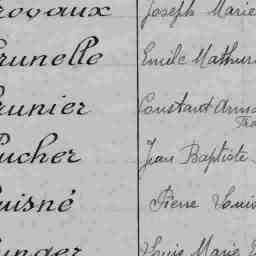 Joseph Marie
runelle Emile Mathur
runier Constant Arma
ucher Jean Baptiste
uisné Pierre Louis
Louis Marie